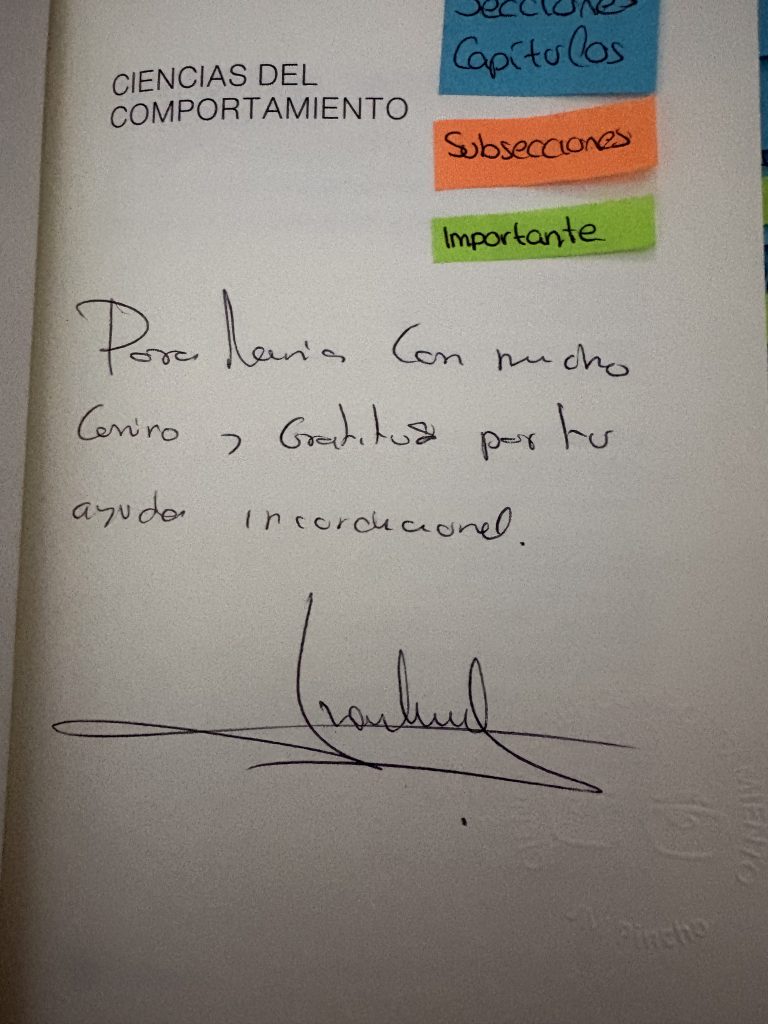 Secciones
Capítulos
CIENCIAS DEL
COMPORTAMIENTO
Subsecciones
Importante
Para Maria Con mucho
Cariño y Gratitud por tu
ayuda incondicional.
Pincho